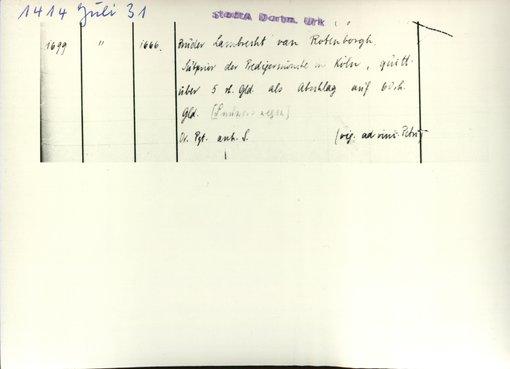 1414 Juli 31
StadtA Dortm. Urk
1699 " 1666. Bruder Lambrecht van Rotenborgh,
Subprior der Predigermönche in Köln, quitt.
über 5 rh. Gld als Abschlag auf 60 rh.
Gld.
Or. Pgt. anh. S. (vig. ad vinc. Petri)